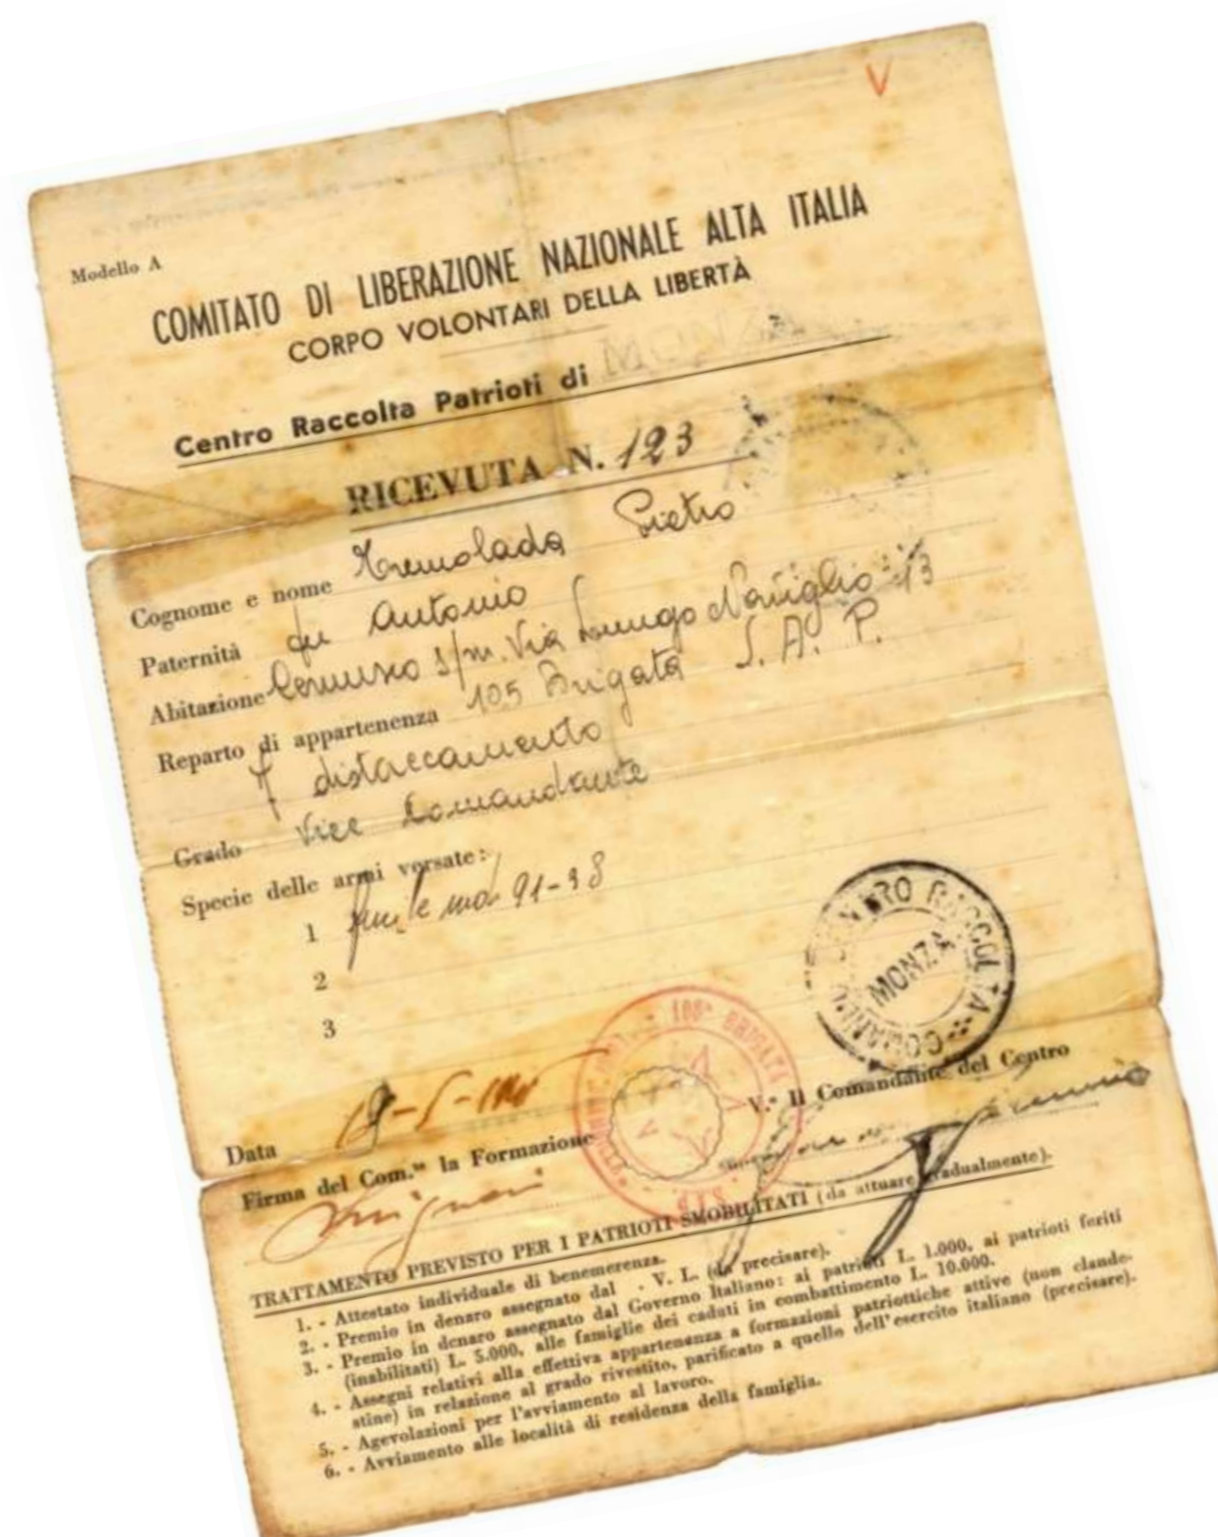 V
Modello A
COMITATO DI LIBERAZIONE NAZIONALE ALTA ITALIA
CORPO VOLONTARI DELLA LIBERTÀ
Centro Raccolta Patrioti di MONZA
RICEVUTA N. 123
Cognome e nome Tremolada Pietro
Paternità fu Antonio
Abitazione Cernusco s/n. Via Lungo Naviglio 13
Reparto di appartenenza 105 Brigata S. A. P.
distaccamento
Grado Vice Comandante
Specie delle armi versate:
1 fucile mod 91-38
2
3
CENTRO RACCOLTA
MONZA
BRIGATA
S.A.P.
V.° Il Comandante del Centro
Data
Firma del Com.te la Formazione
TRATTAMENTO PREVISTO PER I PATRIOTI SMOBILITATI (da attuare gradualmente).
1. - Attestato individuale di benemerenza.
2. - Premio in denaro assegnato dal · V. L. (da precisare).
3. - Premio in denaro assegnato dal Governo Italiano: ai patrioti L. 1.000, ai patrioti feriti
(inabilitati) L. 5.000, alle famiglie dei caduti in combattimento L. 10.000.
4. - Assegni relativi alla effettiva appartenenza a formazioni patriottiche attive (non clande-
stine) in relazione al grado rivestito, parificato a quello dell'esercito italiano (precisare).
5. - Agevolazioni per l'avviamento al lavoro.
6. - Avviamento alle località di residenza della famiglia.